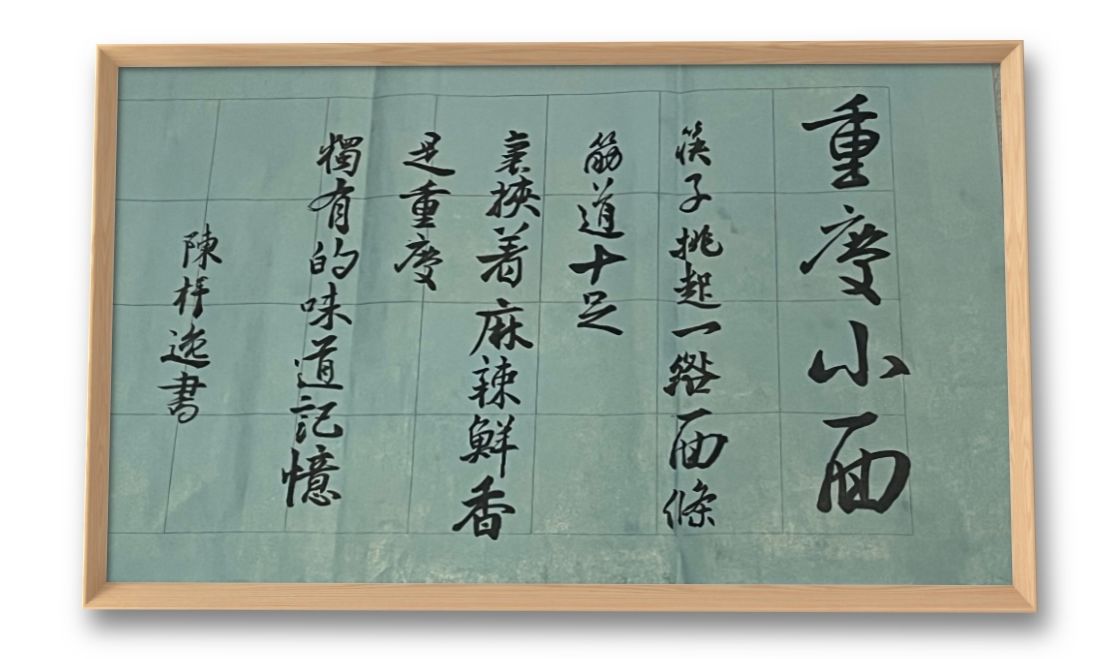 重度小面
筷子挑起一綹面條
筋道十足
裹挾着麻辣鮮香
是重度
獨有的味道記憶
陳梓逸書